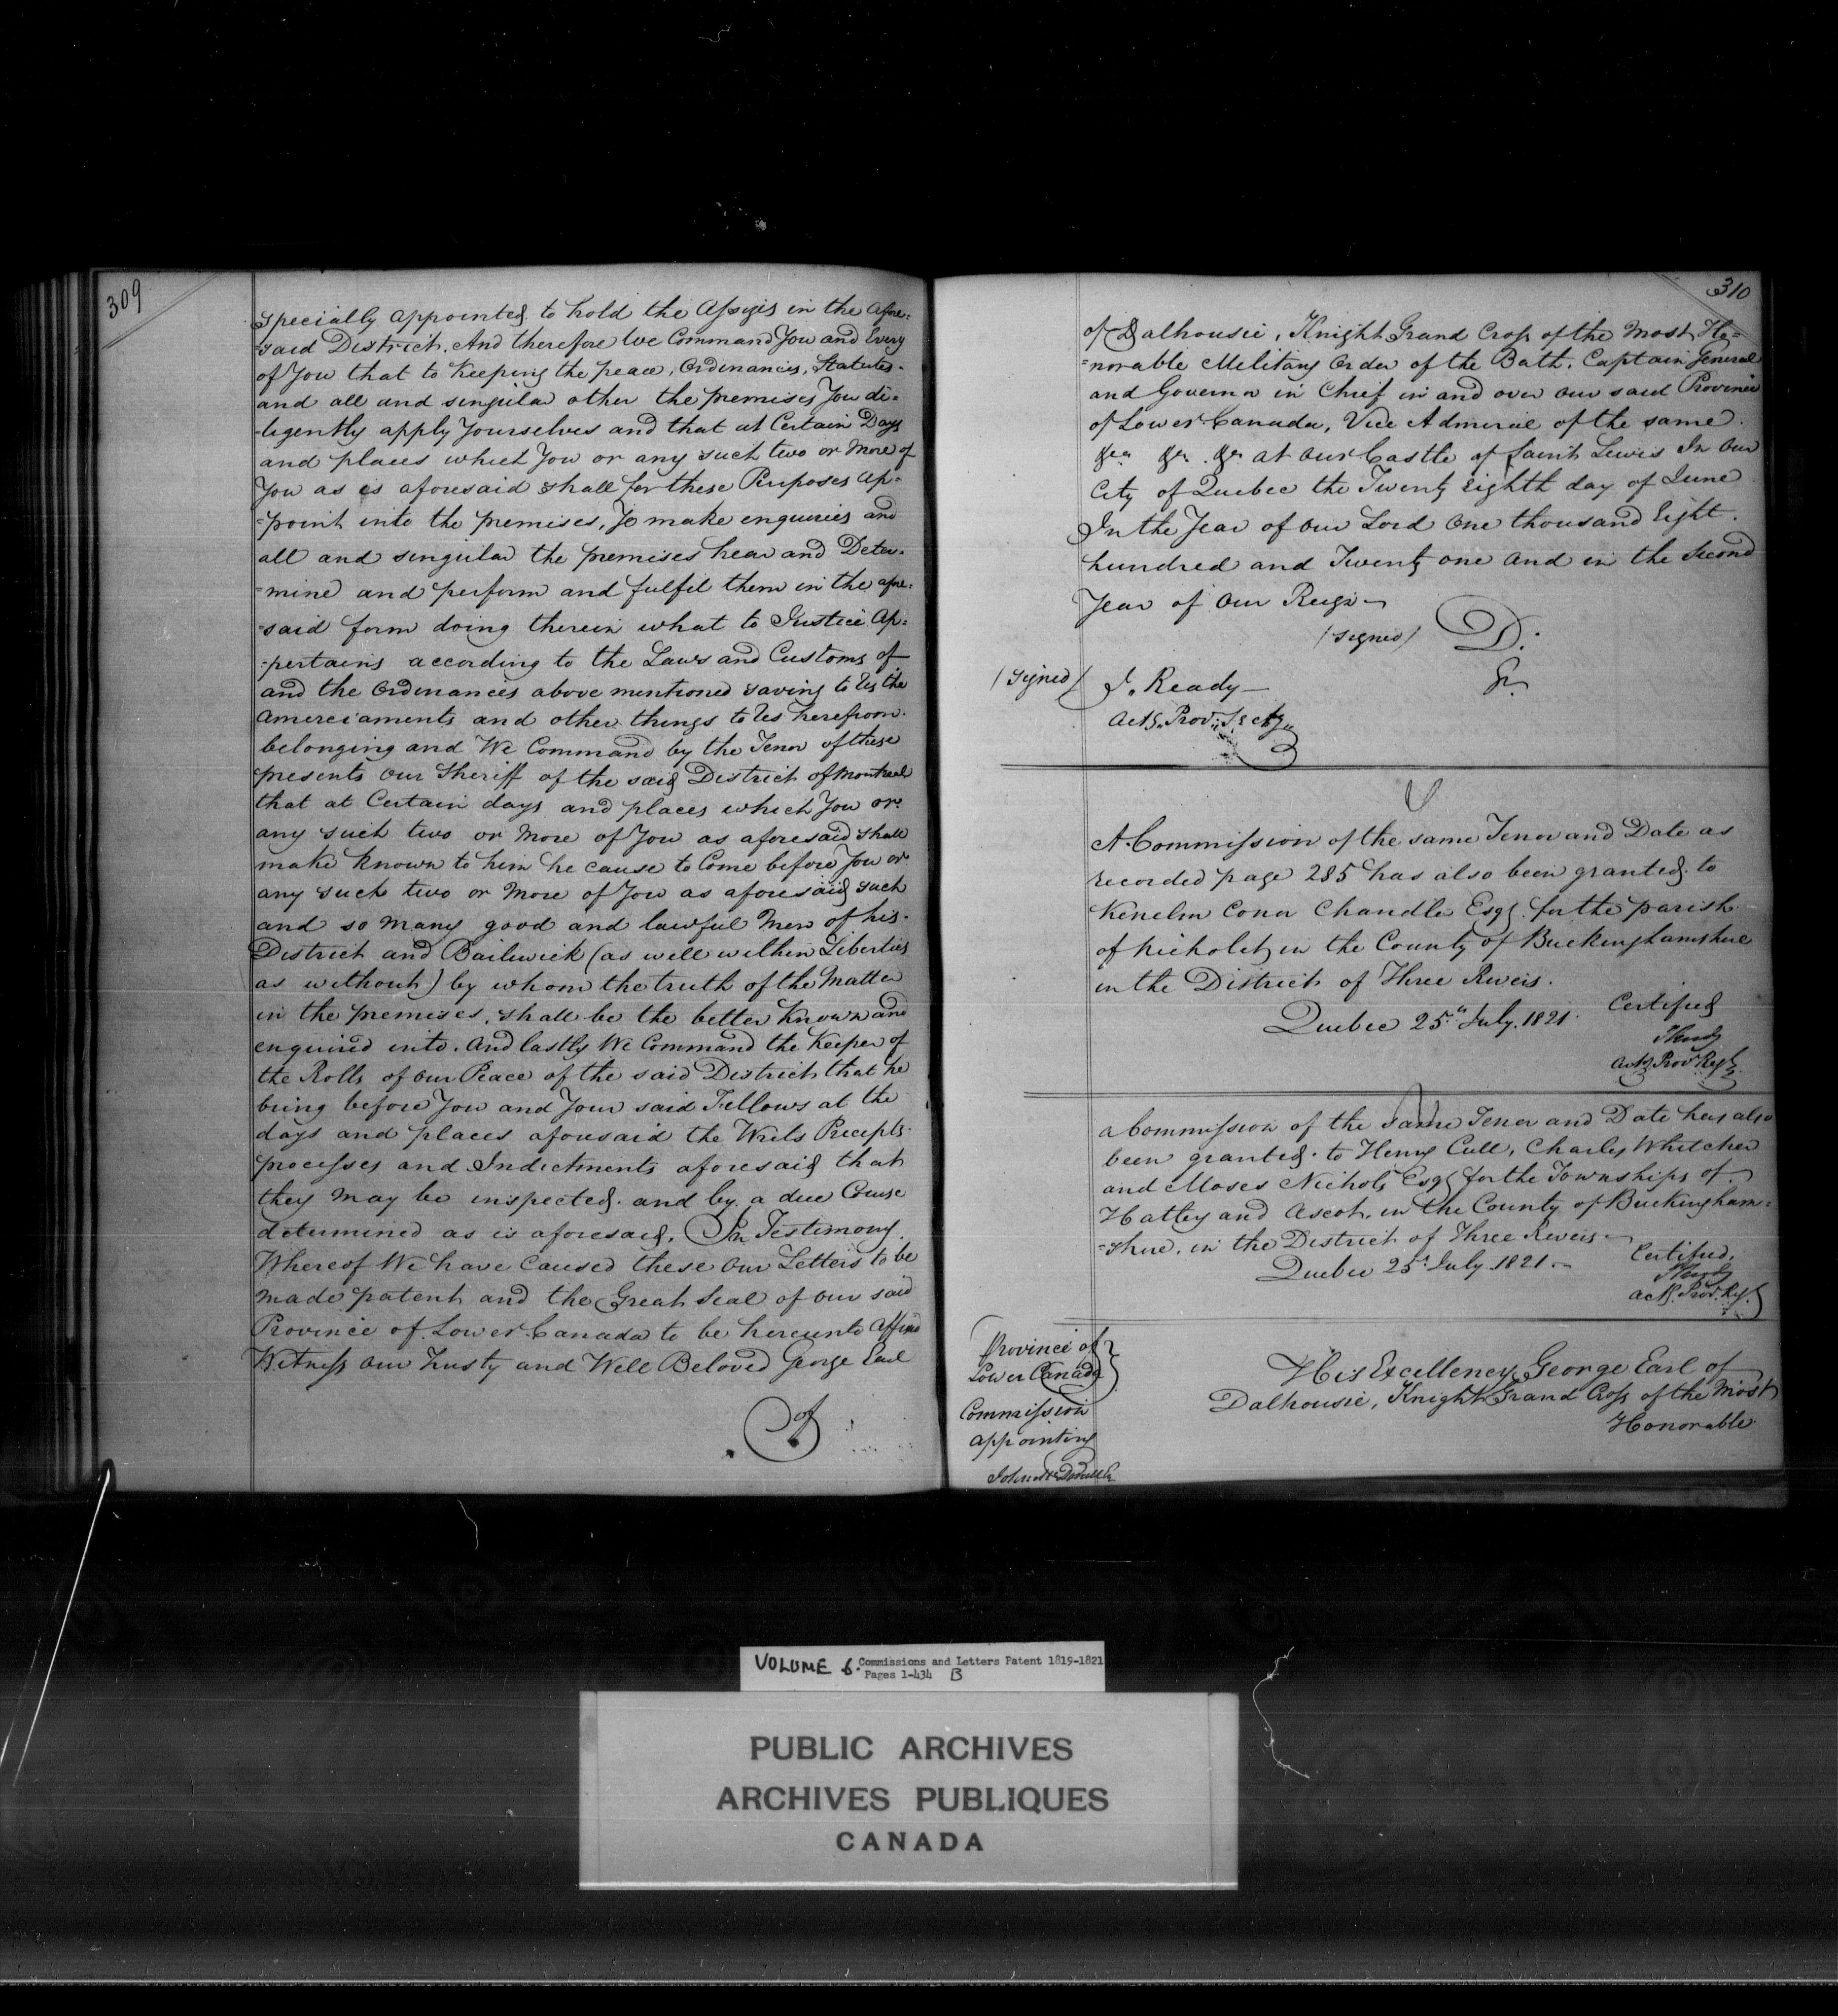 309
specially appointed to hold the Assizes in the afore=
=said District. And therefore We Command You and Every
of You that to Keeping the peace, Ordinances, Statutes
and all and singular other the premises You di=
-ligently apply Yourselves and that at Certain Days
and places which You or any such two or More of
You as is aforesaid shall for these Purposes ap=
=point into the premises, Je make enquiries and
all and singular the premises hear and Deter-
=mine and perform and fulfil them in the afore=
-said form doing therein what to Justice Ap=
=pertains according to the Laws and Customs of
and the Ordinances above mentioned saving to Us the
Amerciaments and other things to Us herefrom
belonging and We Command by the Tenor of these
presents our Sheriff of the said District of Montreal
that at Certain days and places which You or
any such two or More of You as aforesaid shall
make known to him he cause to Come before You or
any such two or More of You as aforesaid such
and so many good and lawful Men of his
District and Bailiwick (as well within Liberties
as without) by whom the truth of the Matter
in the premises, shall be the better Known and
enquired into. And lastly We Command the Keeper of
the Rolls of our Peace of the said District that he
bring before You and Your said Fellows at the
days and places aforesaid the Writs Precepts
processes and Indictments aforesaid that
they may be inspected and by a due Course
determined as is aforesaid. In Testimony
Whereof We have Caused these Our Letters to be
made patent and the Great Seal of our said
Province of Lower Canada to be hereunto Affixed
Witness our Trusty and Well Beloved George Earl
of
310
of Dalhousie, Knight Grand Cross of the Most Ho=
=norable Military Order of the Bath, Captain General
and Governor in Chief in and over our said Province
of Lower Canada, Vice Admiral of the same
&c &c &c at our Castle of Saint Lewis In our
City of Quebec the Twenty eighth day of June
In the Year of our Lord One thousand Eight
hundred and Twenty one and in the Second
Year of our Reign
(Signed) D.
(Signed) J. Ready
Actg. Prov. Secty
A Commission of the same Tenor and Date as
recorded page 285 has also been granted to
Kenelm Conor Chandler Esqr. for the parish
of Nicholet in the County of Buckinghamshire
in the District of Three Rivers.
Quebec 25th July 1821. Certified
Actg Prov Regr
a Commission of the same Tenor and Date has also
been granted to Henry Cull, Charles Whitcher
and Moses Nichols Esqrs for the Townships of
Hatley and Ascot, in the County of Buckingham=
=shire, in the District of Three Rivers
Quebec 25th July 1821. Certified,
Actg. Prov. Regr
Province of
Lower Canada
Commission
appointing
His Excellency George Earl of
Dalhousie, Knight Grand Cross of the Most
Honorable
VOLUME 6. Commissions and Letters Patent 1819-1821
Pages 1-434 B
PUBLIC ARCHIVES
ARCHIVES PUBLIQUES
CANADA